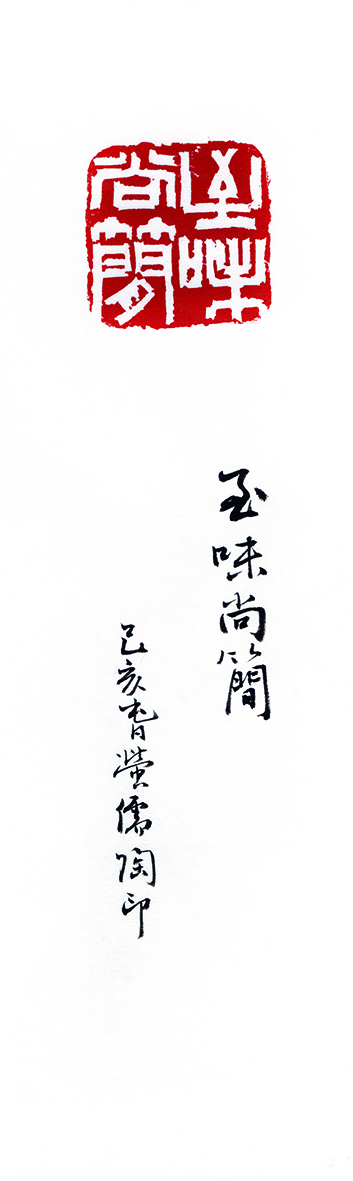 至味
尚簡
至味尚簡
己亥春螢儒陶印